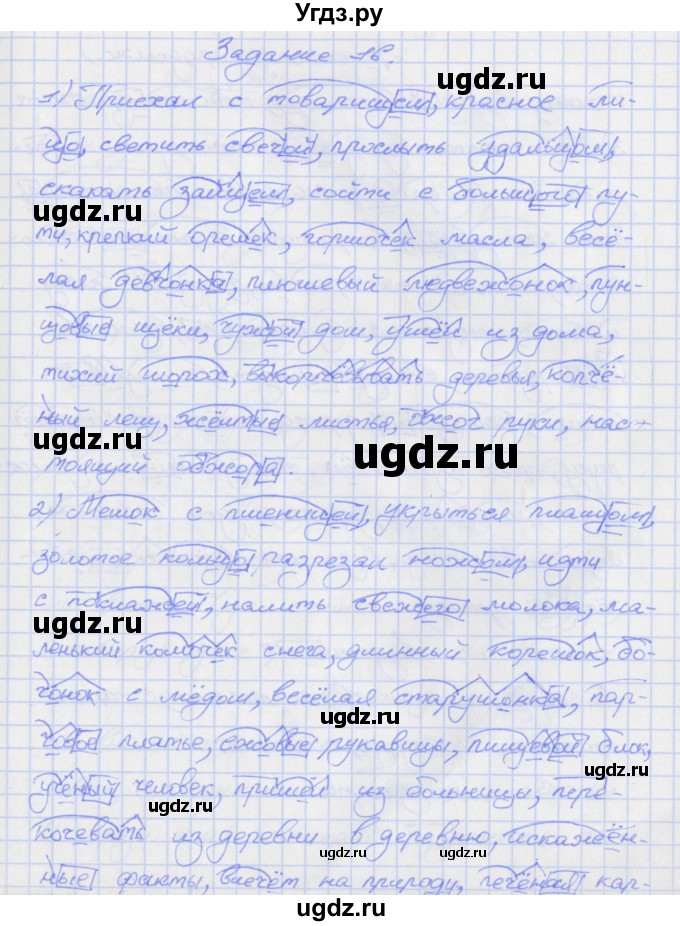 Угдз.ру
Задание 16.
1) Приехал с товарищем, красное ли-
цо, светить свечой, прослыть удальцом,
скакать зайцем, сойти с большого пу-
ти, крепкий орешек, горшочек масла, весё-
лая девчонка, плюшевый медвежонок, пун-
цовые щёки, чужой дом, ушёл из дома,
тихий шорох, выкорчёвывать деревья, копчё-
ный лещ, жёлтые листья, ожог руки, нас-
тоящий обжора.
2) Мешок с пшеницей, укрыться плащом,
золотое кольцо, разрезан ножом, идти
с поклажей, налить свежего молока, ма-
ленький комочек снега, длинный корешок, бо-
чонок с мёдом, весёлая старушонка, пар-
човое платье, ежовые рукавицы, пищевой блок,
учёный человек, пришёл из больницы, пере-
кочевать из деревни в деревню, искажён-
ные факты, влечёт на природу, печёная кар-
ugdz.ru
ugdz.ru
ugdz.ru
ugdz.ru
ugdz.ru
ugdz.ru
ugdz.ru
ugdz.ru
ugdz.ru
ugdz.ru
ugdz.ru
ugdz.ru
ugdz.ru